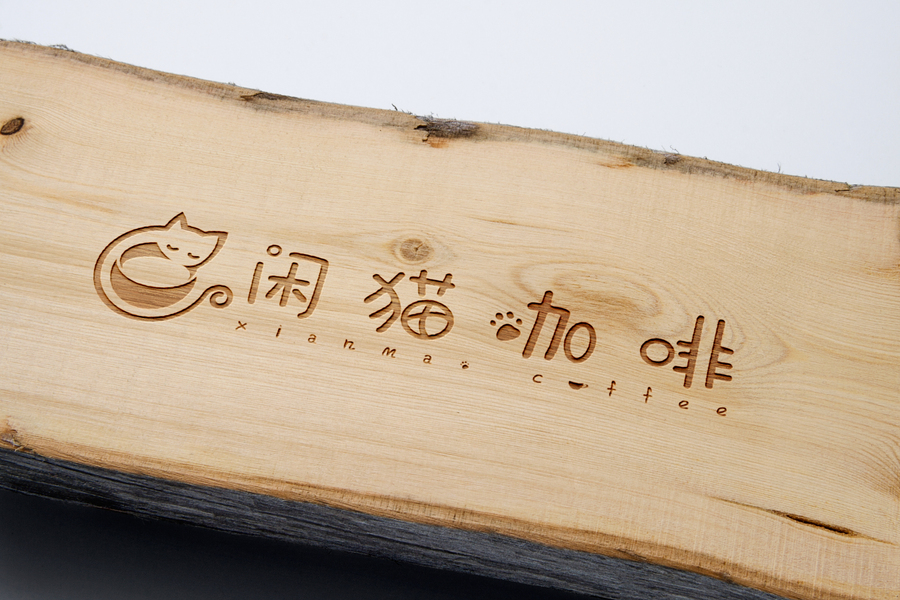 闲猫咖啡
xianmao coffee